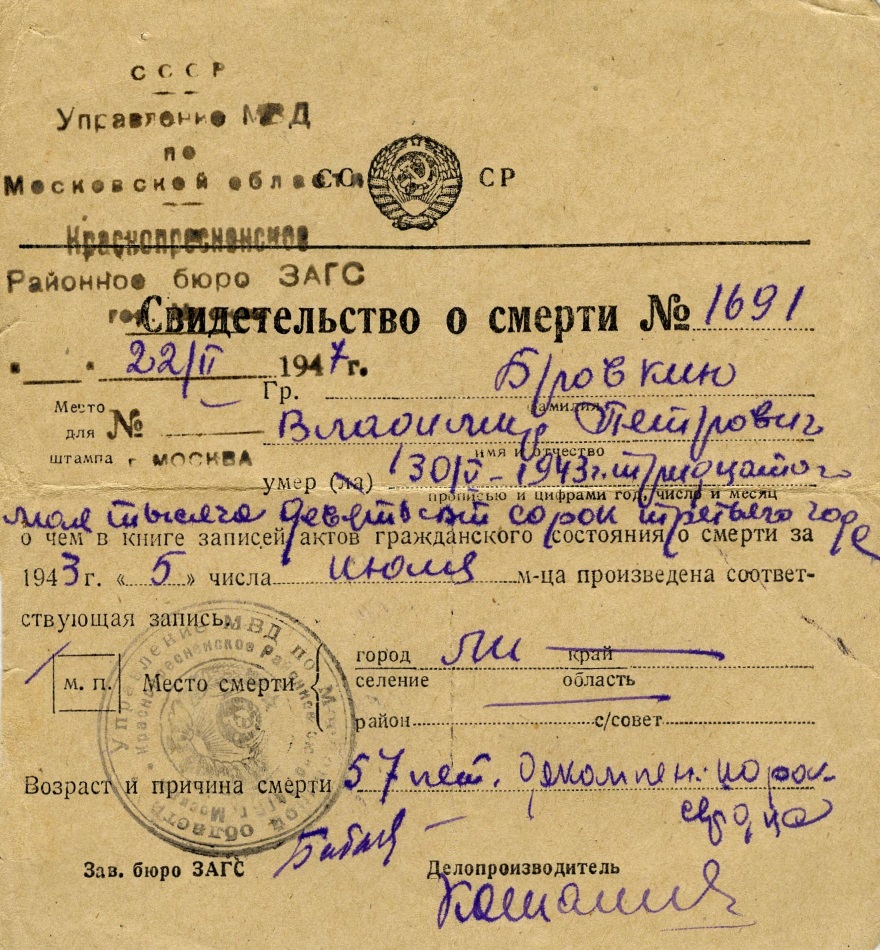 СССР
Управление МВД
по
Московской области
СО СР
Краснопресненское
Районное бюро ЗАГС
гор.
Свидетельство о смерти № 1691
" " 22/II 1947г.
Гр. Бровкин
фамилия
Место для штампа
№
г МОСКВА
Владимир Петрович
имя и отчество
умер (ла) 30/V - 1943г. тридцатого
прописью и цифрами год, число и месяц
мая тысяча девятьсот сорок третьего года
о чем в книге записей актов гражданского состояния о смерти за
1943 г. « 5 » числа июля м-ца произведена соответ-
ствующая запись.
м. п.
Место смерти
город край
селение область
район с/совет
Управление МВД по Московской области
Возраст и причина смерти 57 лет. Декомпен. порок
сердца
Зав. бюро ЗАГС
Делопроизводитель